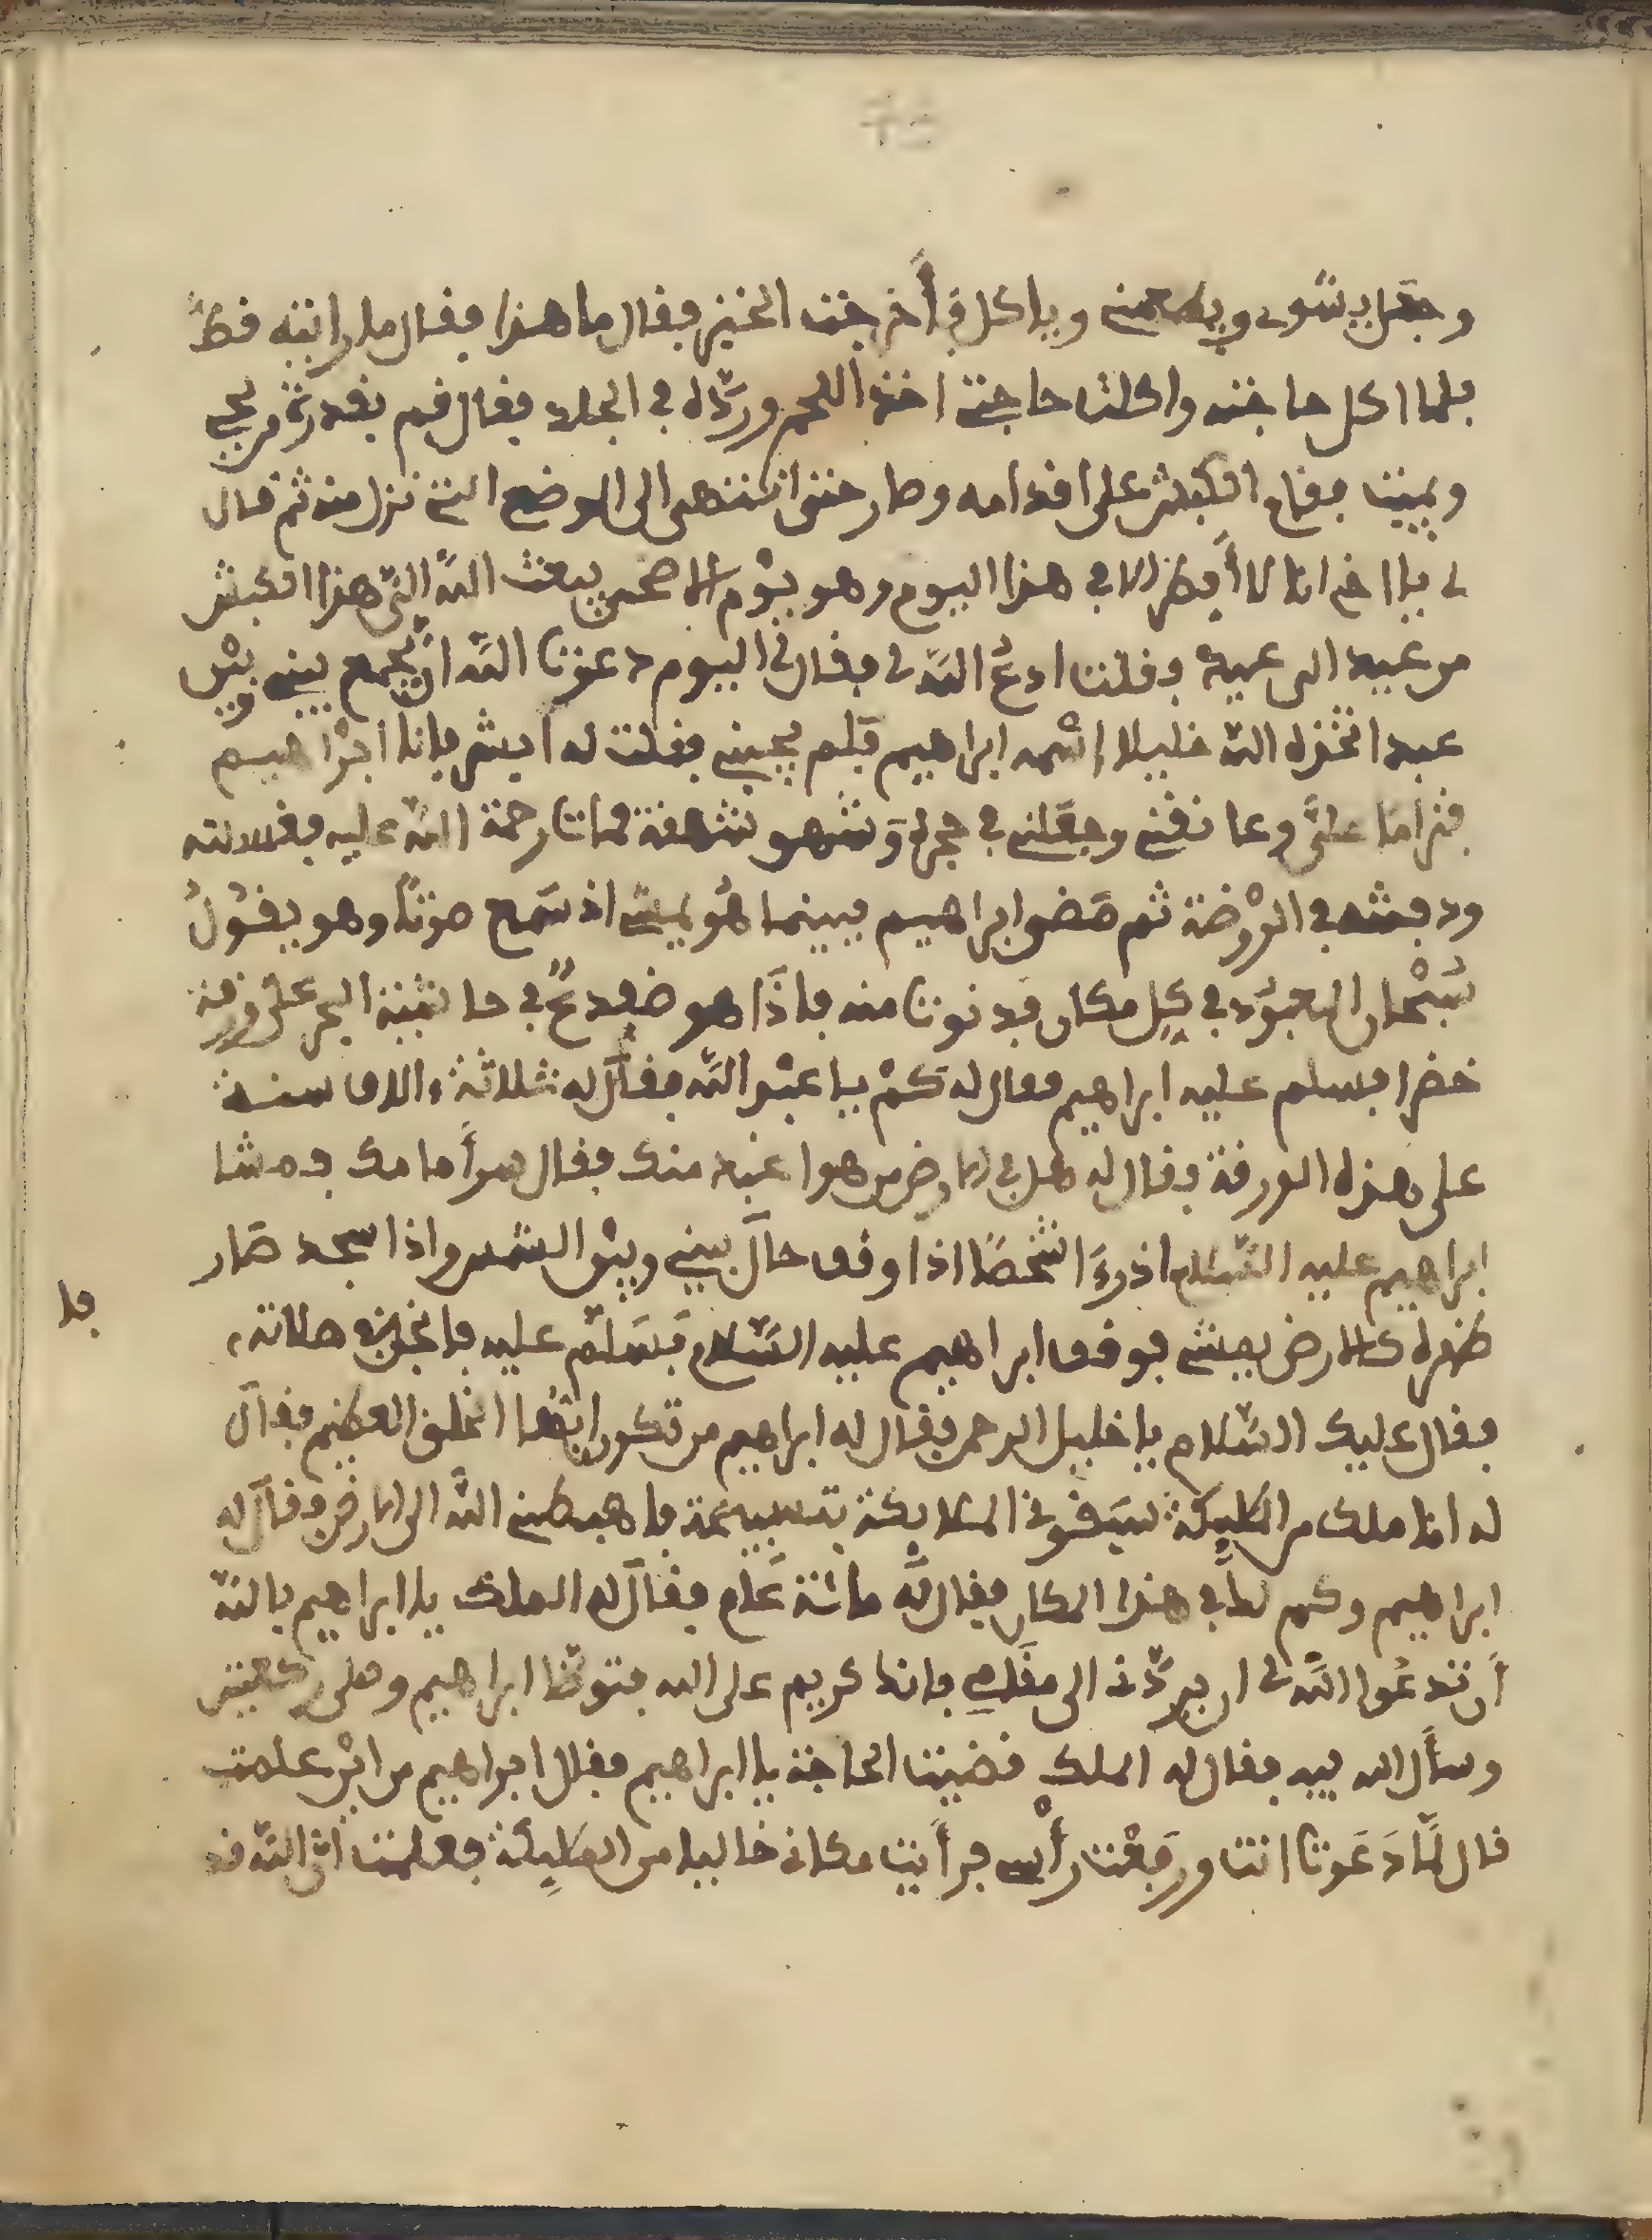 وجعل يشوي ويطعمني وياكل فأخرجت الخبز فقال ما هذا فقال ما رايته قط
فلما اكل حاجته واكلت حاجتي اخذ اللحم ورده في الجلد فقال قم بقدرة من يحي
ويميت فقام الكبش على اقدامه وطار حتى انتهى الى الموضع التي نزل منه ثم قال
لي يا اخي انا لا أفطر الا في هذا اليوم وهو يوم الاضحى يبعث الله الي هذا الكبش
من عيد الى عيد فقلت ادع الله لي فقال لي اليوم دعوت الله ان يجمع بيني وبين
عبد اتخذه الله خليلا إسمه ابراهيم فلم يجبني فقلت له ابشر فانا ابراهيم
فتراما علي وعانقني وجعلني في حجره وشهق شهقة فمات رحمة الله عليه فغسلته
ودفنته في الروضة ثم مضى ابراهيم فبينما هو يمشي اذ سمع صوتا وهو يقول
سبحان المعبود في كل مكان فدنوت منه فاذا هو ضفدع في حاشية البحر على ورقة
خضرا فسلم عليه ابراهيم فقال له كم يا عبد الله فقال له ثلاثة ءالاف سنة
على هذه الورقة فقال له هل في الارض من هوا عبد منك فقال سر أمامك فمشا
ابراهيم عليه السلام اذ رءا شخصا اذا وقف حال بيني وبين الشمس واذا سجد صار
ظهره كالارض يمشي فوقف ابراهيم عليه السلام فسلم عليه فا صلاته
فا
فقال عليك السلام يا خليل الرحمن فقال له ابراهيم من تكون ايها الخلق العظيم فقال
له انا ملك من المليكة سبقوني الملايكة بتسبيحة فاهبطني الله الى الارض فقال له
ابراهيم وكم لك في هذا المكان فقال له مائة عام فقال له الملك يا ابراهيم بالله
أن تدعوا الله لي ان يردني الى مقامي فانك كريم على الله فتوضا ابراهيم وصلى ركعتين
وسأل الله فيه فقال له الملك قضيت الحاجة يا ابراهيم فقال ابراهيم من اين علمت
قال لما دعوت انت ورفعت رأسي فرأيت مكاني خاليا من المليكة فعلمت ان الله قد